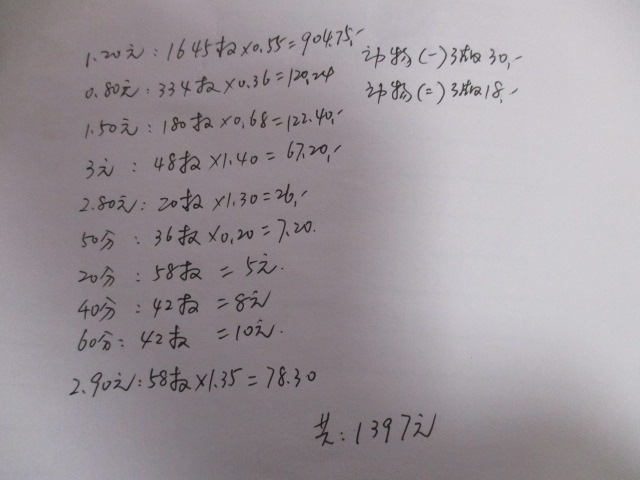 1.20元：1645枚×0.55=904.75,-
0.80元：334枚×0.36=120.24
1.50元：180枚×0.68=122.40,-
3元：48枚×1.40=67.20,-
2.80元：20枚×1.30=26,-
50分：36枚×0.20=7.20.
20分：58枚=5元.
40分：42枚=8元
60分：42枚=10元.
2.90元：58枚×1.35=78.30
动物(一)3版30,-
动物(二)3版18,-
共：1397元